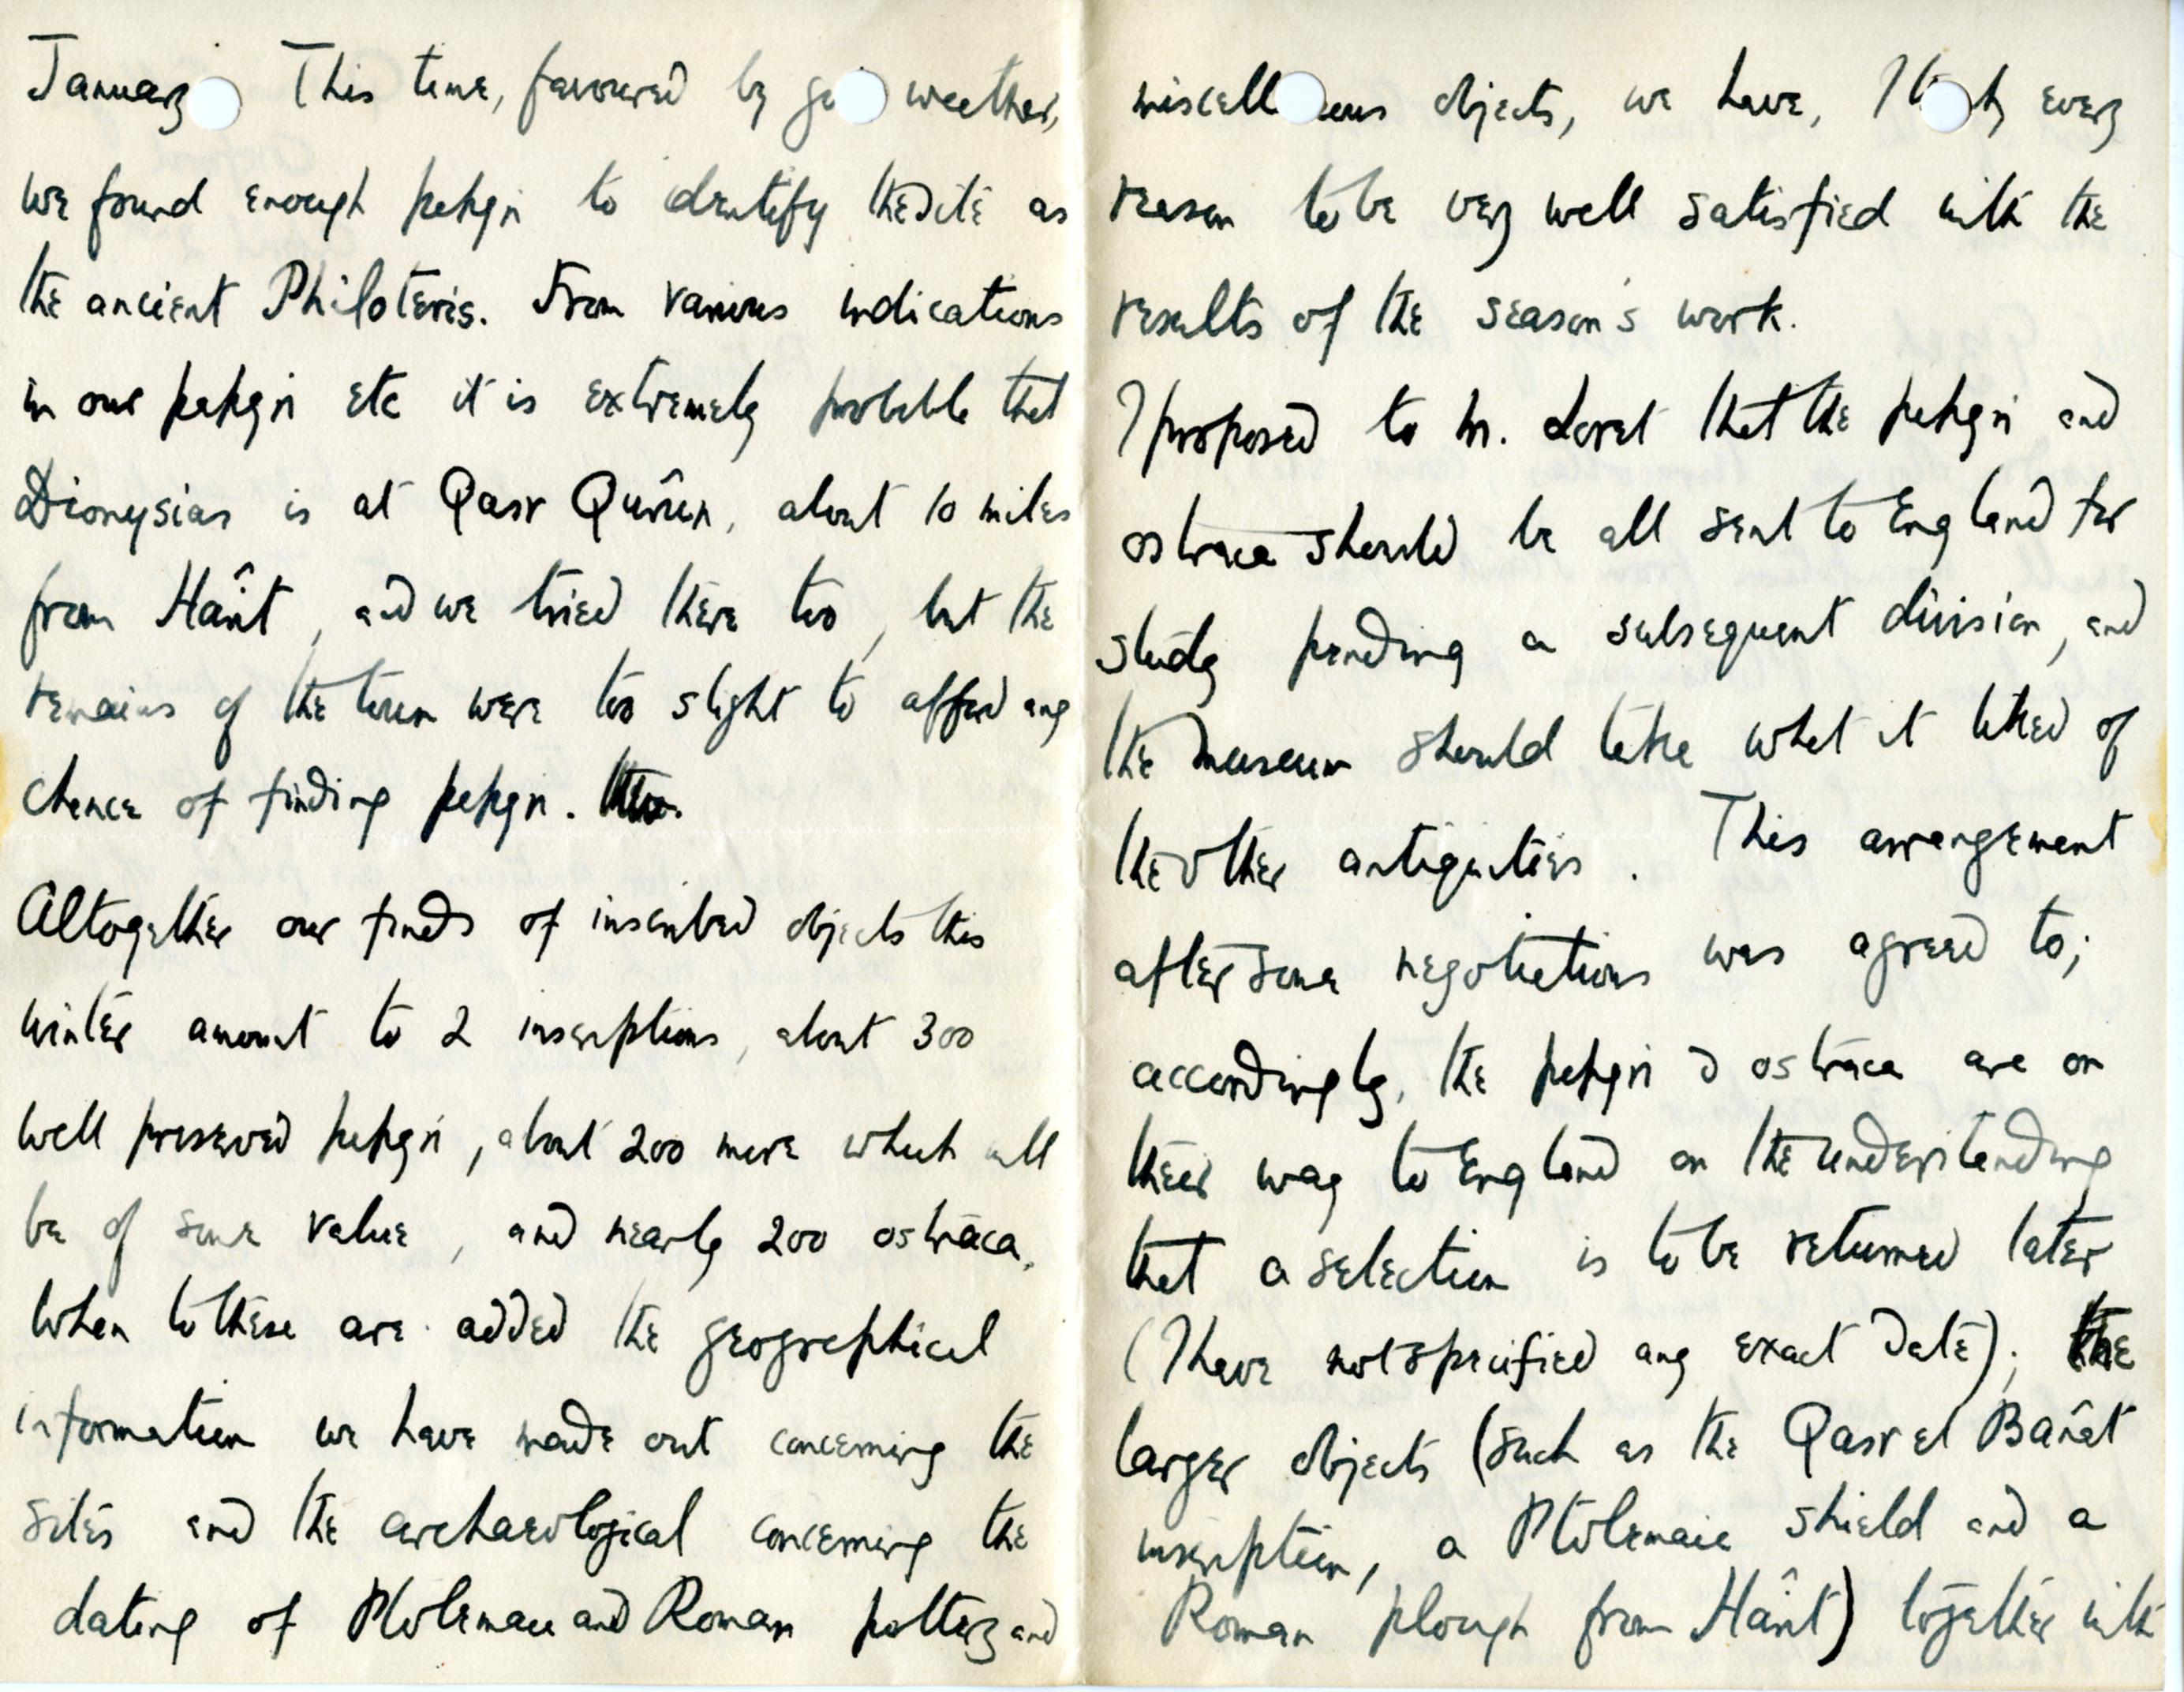 January. This time, favoured by good weather,
we found enough papyri to identify the site as
the ancient Philoteris. From various indications
in our papyri etc it is extremely probable that
Dionysias is at Qasr Qurûn, about 10 miles
from Harît, and we tried there too, but the
remains of the town were too slight to afford any
chance of finding papyri.
Altogether our finds of inscribed objects this
winter amount to 2 inscriptions, about 300
well preserved papyri, about 200 more which will
be of some value, and nearly 200 ostraca.
When to these are added the geographical
information we have made out concerning the
sites and the archaeological concerning the
dating of Ptolemaic and Roman pottery and
miscellaneous objects, we have, I think, every
reason to be very well satisfied with the
results of the season's work.
I proposed to M. Loret that the papyri and
ostraca should be all sent to England for
study pending a subsequent division, and
the museum should take what it liked of
the other antiquities. This arrangement
after some negotiations was agreed to;
accordingly, the papyri & ostraca are on
their way to England on the understanding
that a selection is to be returned later
(I have not specified any exact date); the
larger objects (such as the Qasr el Banât
inscription, a Ptolemaic shield and a
Roman plough from Harît) together with